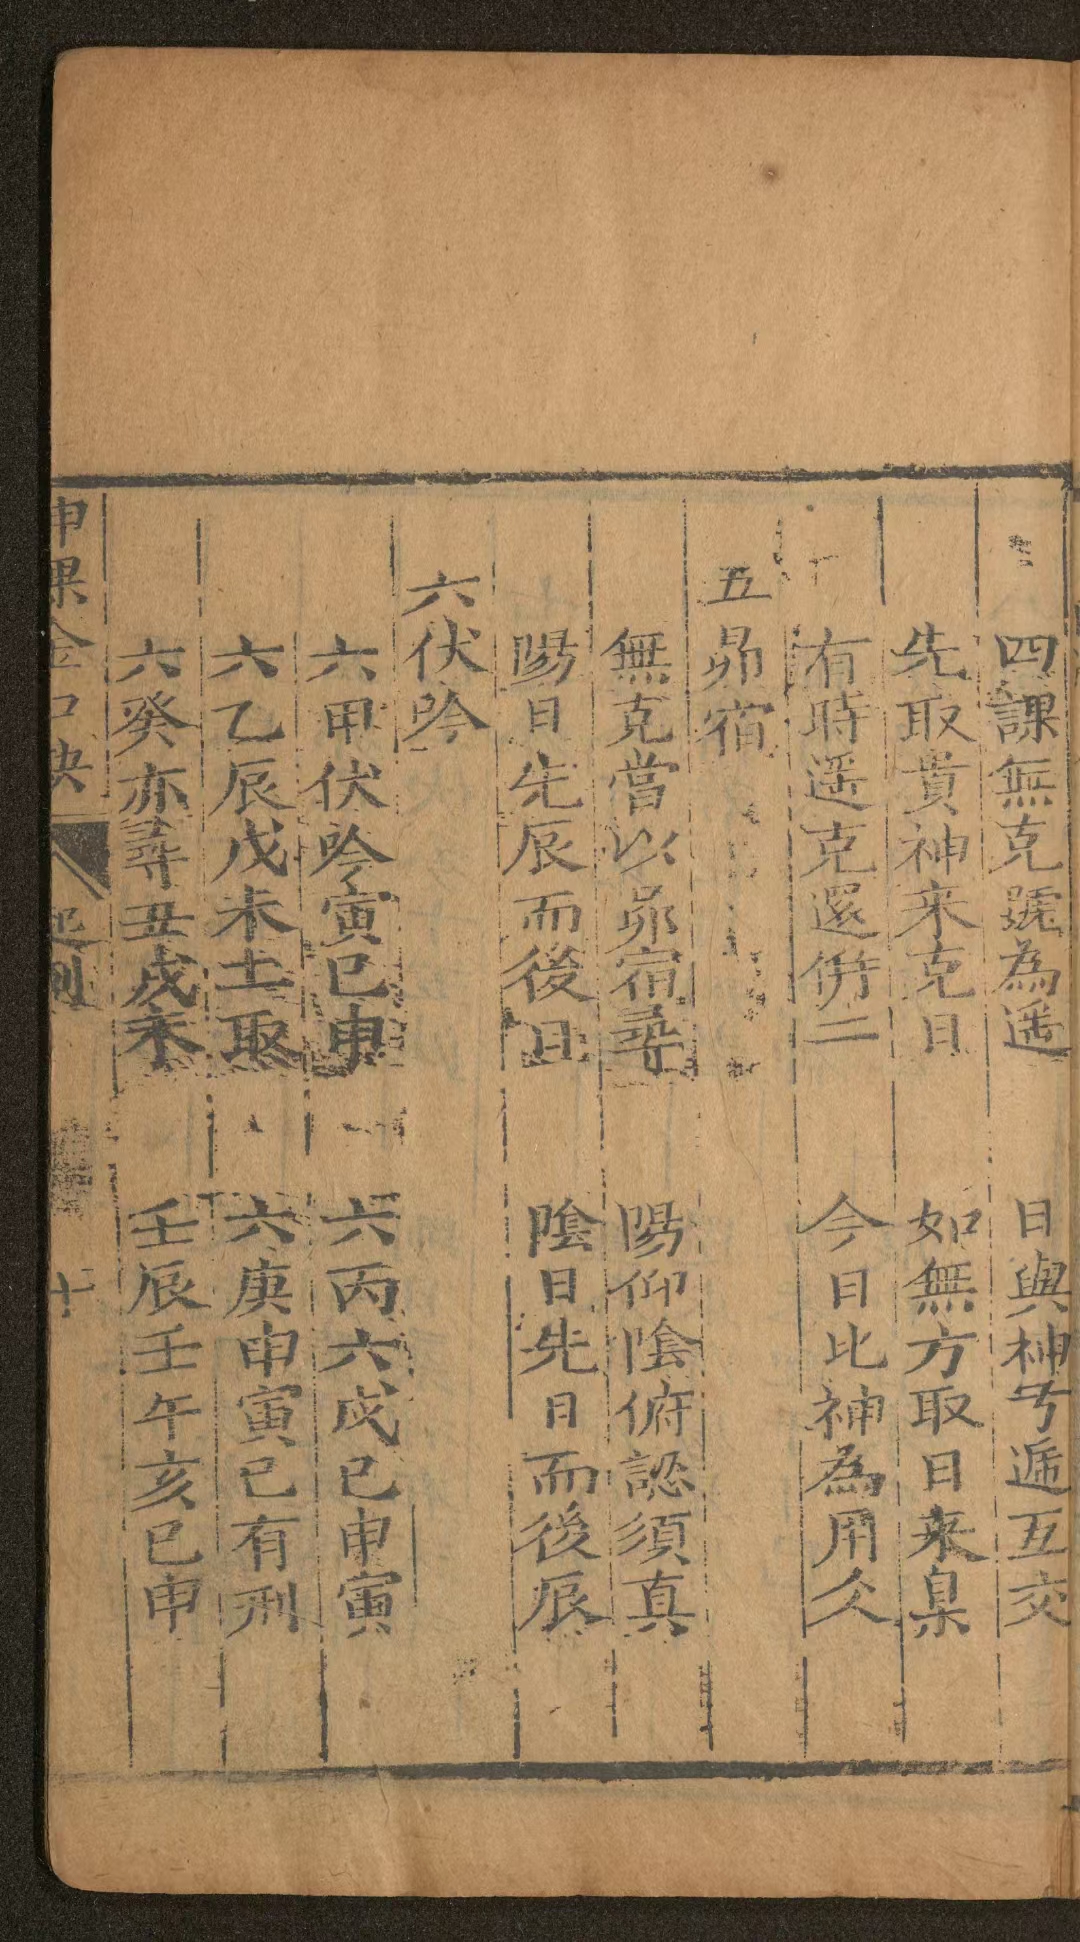 四課無克號為遥　日與神兮遞互交
先取貴神来克日　如無方取日来臬
有時遥克還併二　今日比神為用爻
五昴宿
無克當以昴宿尋　陽仰陰俯認須真
陽日先辰而後日　陰日先日而後辰
六伏吟
六甲伏吟寅巳申　六丙六戊巳申寅
六乙辰戌未土取　六庚申寅巳有刑
六癸亦尋丑戌未　壬辰壬午亥巳申
申課金口訣　起例　十